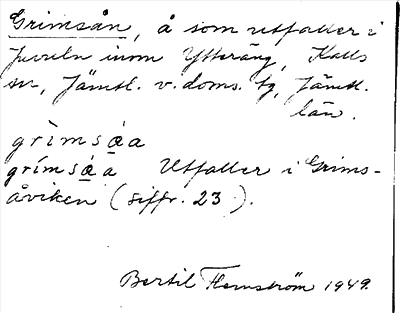 Grimsån, å som utfaller i
Juveln inom Ytteräng, Kalls
sn, Jämtl. v. doms. tg, Jämtl.
län.
grìmsǻa
grímsǻ̀a Utfaller i Grims-
åviken (siffr. 23).
Bertil Flemström 1949.